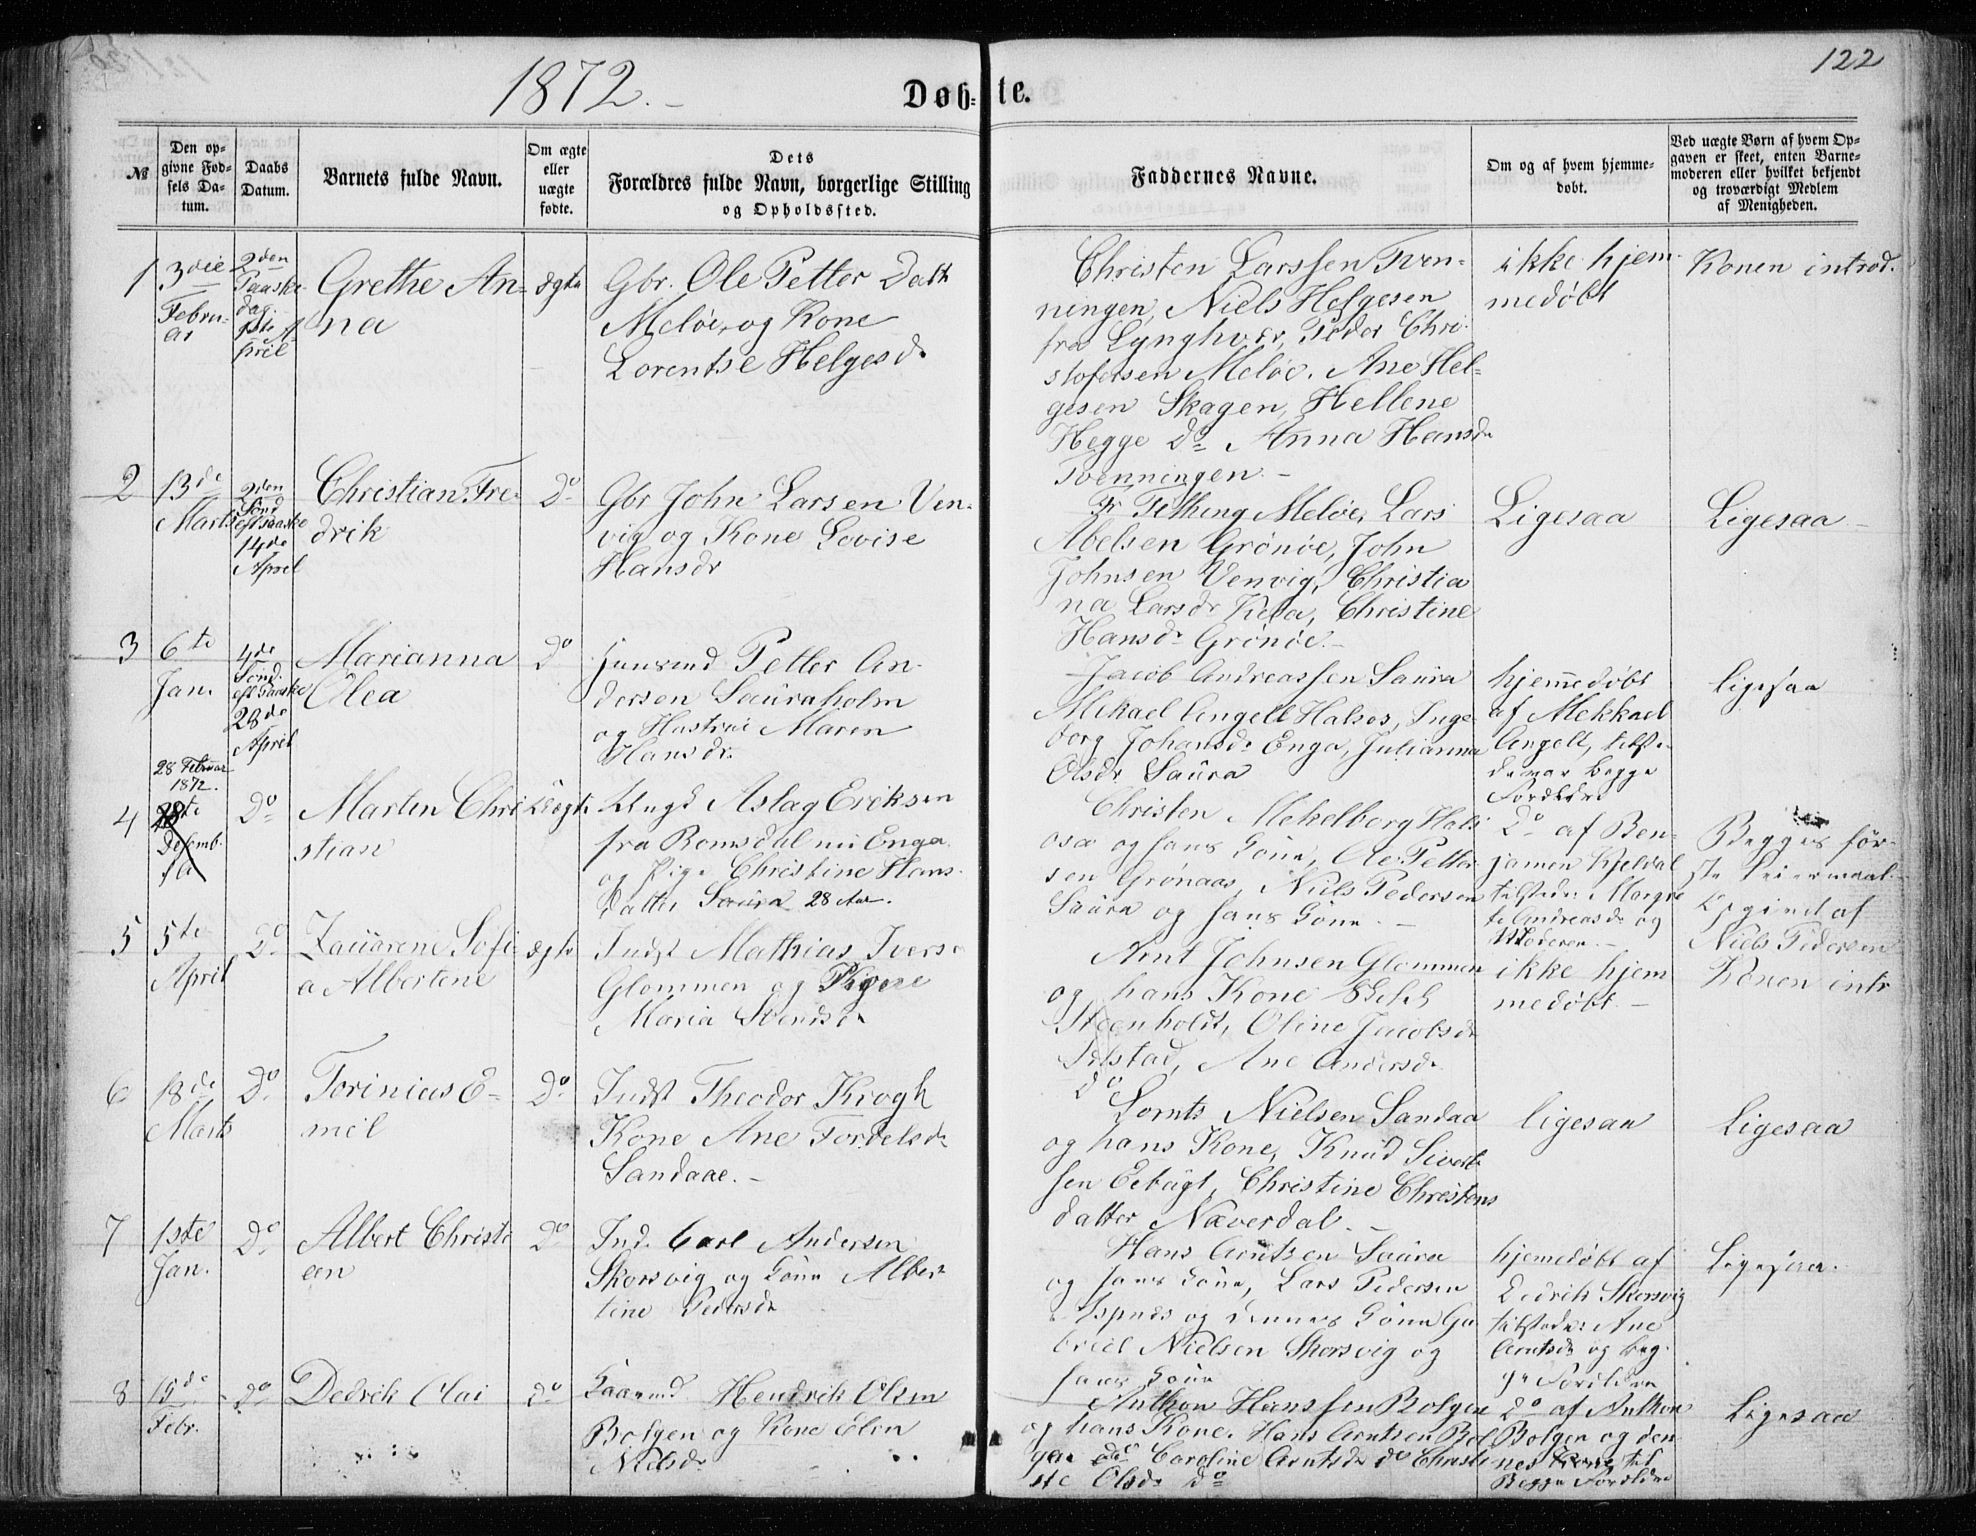 122
1872.
Døb-te.
№
Den op-
givne Fød-
sels Da-
tum.
Daabs
Datum.
Barnets fulde Navn.
Om ægte
eller
uægte
fødte.
Dets
Forældres fulde Navn, borgerlige Stilling
og Opholdssted.
Faddernes Navne.
Om og af hvem hjemme-
døbt.
Ved uægte Børn af hvem Op-
gaven er skeet, enten Barne-
moderen eller hvilket bekjendt
og troværdigt Medlem
af Menigheden.
1
3die
Febru-
ar
2den
Paaske
dag
1ste A-
pril
Grethe An-
na
ægte
Gbr. Ole Petter Dath
Meløe, og Kone
Lorentse Helgesd.
Christen Larssen Tven-
ningen, Niels Helgesen
fra Lynghver, Peder Chri-
stofersen Meløe. Ane Hel-
gesen Skagen, Hellene
Hegge do Anna Hansdr
Tvenningen.-
ikke hjem-
medøbt
Konen introd.
2
13de
Marts
2den
Sønd
eft Paaske
14de
April
Christian Fre-
drik
Do
Gbr John Larsen Ven-
vig og Kone Lovise
Hansdr
Meløe, Lars
Abelsen Grönöe, John
Johnsen Venvig, Christia
na Larsdr Kila, Christine
Hansdr Grönöe.-
Ligesaa
Ligesaa
3
6te
Jan.
4de
Sønd.
eft Paaske
28de
April
Marianna
Olea
Do
Huusmd Petter An-
dersen Sauraholm
og Hustrue Maren
Hansdr.
Jacob Andreassen Saura
Mekael Angell Halsos, Inge-
borg Johansdr Enga, Julianna
Olsdr Saura
hjemmedøbt
af Mekkael
Angell, tilste-
de var begge
Forældre
ligesaa
4
28 Februar
1872.
28te
Desemb.
Do
Marten Chri
stian
Uægte
Ungk Aslag Eriksen
fra Romsdal nu Enga
og Pige Christine Hans-
datter Saura 28 Aar.
Christen Mehelborg Hals
osa og hans Kone, Ole Petter-
sen Gronaas, Niels Pedersen
Saura og hans Kone.-
Do af Ben-
jamen Kjeldal
tilstede: Margre
te Andreasdr og
Moderen.-
Begges før-
ste leiermaal.-
Opgivet af
Niels Pedersen
5
5te
April
Do
Lauarene Sofi
a Albertine
ægte
Indst Mathias Iverse
Glommen og Kone
Maria Svendsdr
Arnt Johnsen Glommen
og hans Kone
Steenholdt, Oline Jacobsdr
Selstad, Ane Andersdr
do
ikke hjem
medøbt.-
Konen intr
6
18de
Marts
Do
Torinius E-
mil
Do
Indst Theodor Krogh
Kone Ane Tordelsdr
Sandaae.-
Lornts Nielsen Sandaa
og hans Kone, Knud Sivert-
sen Eebugt, Christine Christens
datter Næverdal.-
ligesaa
Ligesaa
7
1ste
Jan.
Do
Albert Christi
an
Do
Ind. Carl Andersen
Skorsvig og Kone Alber
tine Pedersdr
Hans Arntsen Saura
og hans Kone, Lars Pedersen
Espnes og dennes Kone Ga
briel Nielsen Skorsvig og
hans Kone
hjemedøbt af
Dedrik Skorsvig
tilstede: Ane
Arntsdr og beg-
ge Forældre
Ligesaa.
8
15de
Febr.
Do
Dedrik Olai
Do
Huusmd Hendrik Olsen
Bolgen og Kone Elen
Nielsdr
Anthon Hanssen Bolgen
og hans Kone. Hans Arntsen Bol
gen do Caroline Arntsdr do Christi
ne Olsdr Do
Do af Anthon
Bolgen og den-
nes Kone til
Begge Forældre
Ligesaa